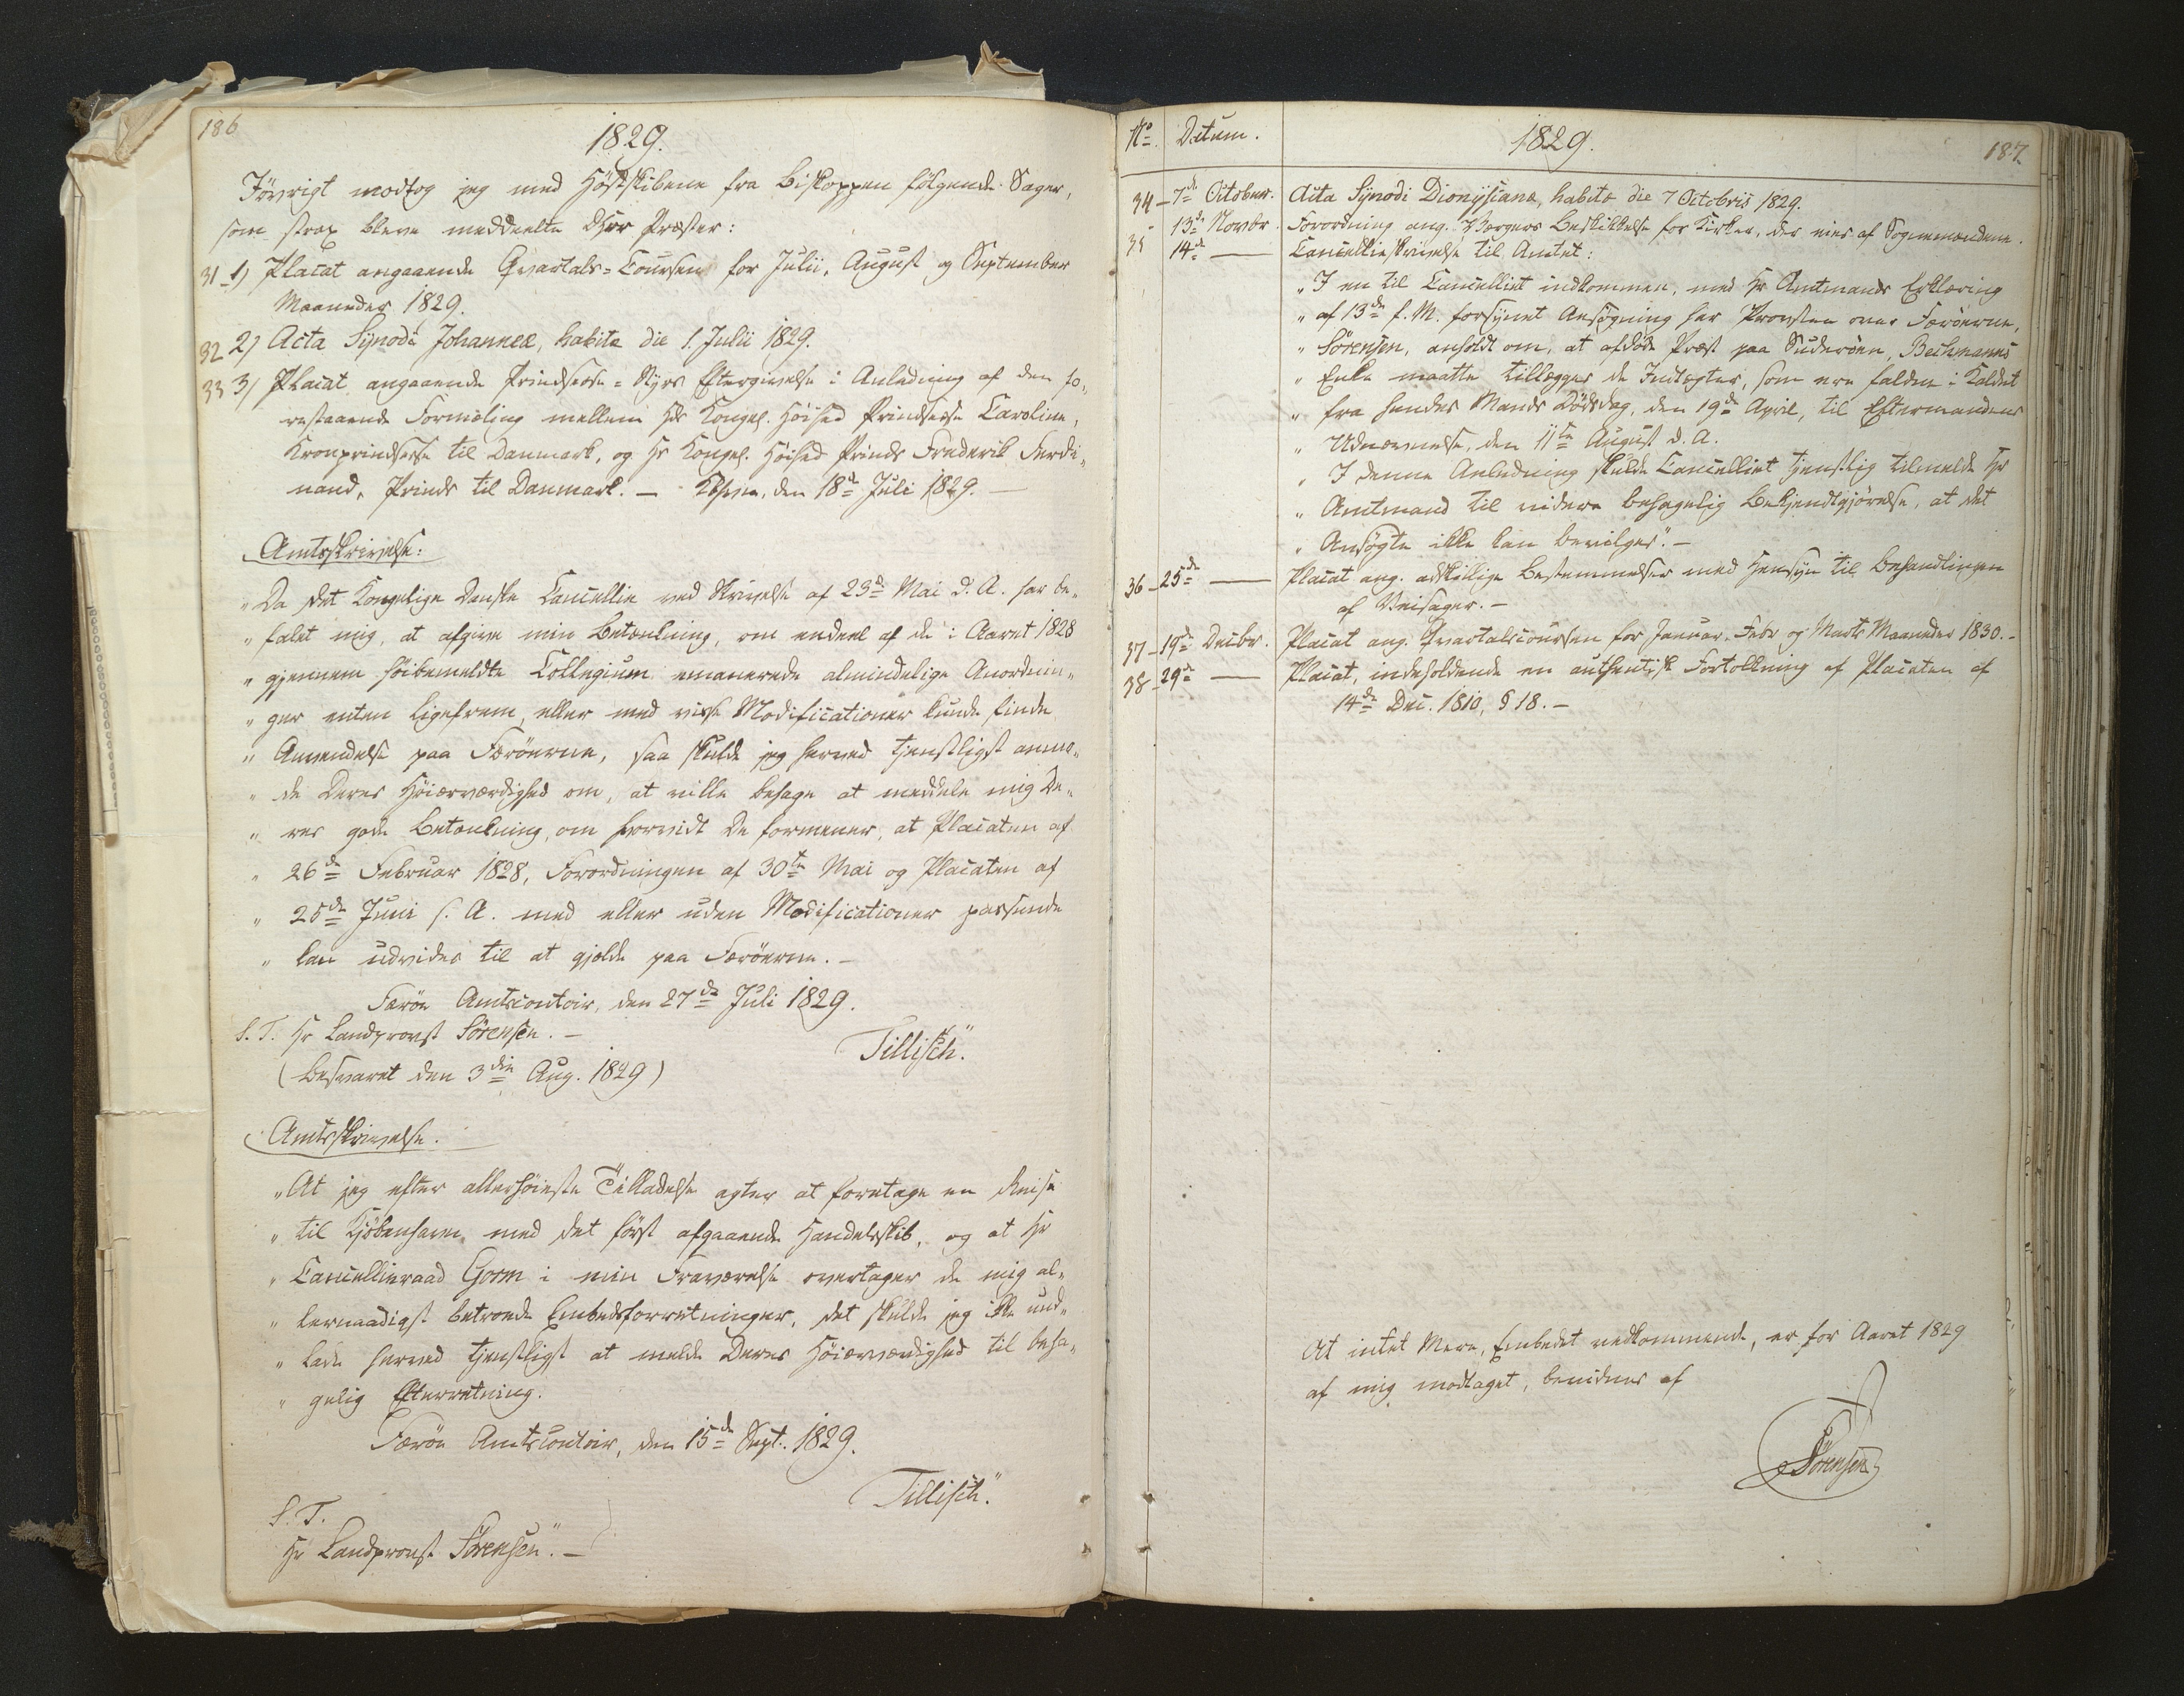 186
1829.
Iøvrigt modtog jeg med Høstskibene fra Biskoppen følgende Sager,
som strax bleve meddeelte DHrr Præster:
31 1) Placat angaaende Qvartals-Coursen for Julii, August og September
Maaneder 1829.
32 2) Acta Synodi Johanneæ, habitæ die 1. Julii 1829.
33 3) Placat angaaende Prindsesse-Styrs Eftergivelse i Anledning af den fo-
restaaende Formæling mellem Hds Kongel. Høihed Prindsesse Caroline,
Kronprindsesse til Danmark, og Hs Kongel. Høihed Prinds Frederik Ferdi-
nand, Prinds til Danmark. — Kbhvn, den 18de Juli 1829. —
Amtsskrivelse:
"Da det Kongelige Danske Cancellie ved Skrivelse af 23de Mai d. A. har be-
" falet mig, at afgive min Betænkning, om endeel af de i Aaret 1828
" gjennem høibemeldte Collegium emanerede almindelige Anordnin-
" ger enten ligefrem, eller med visse Modificationer kunde finde
" Anvendelse paa Færöerne, saa skulde jeg herved tjenstligst anmo-
" de Deres Høiærværdighed om, at ville behage at meddele mig De-
" res gode Betænkning, om hvorvidt De formener, at Placaten af
" 26de Februar 1828, Forordningen af 30te Mai og Placaten af
" 25de Juni s. A. med eller uden Modificationer passende
" kan udvides til at gjelde paa Færöerne. —
Færöe Amtscontoir, den 27de Juli 1829.
S. T. Hr Landprovst Sörensen. —
Tillisch."
(Besvaret den 3die Aug. 1829)
Amtsskrivelse.
"At jeg efter allerhøieste Tilladelse agter at foretage en Reise
" til Kjöbenhavn med det först afgaaende Handelsskib, og at Hr
" Cancellieraad Gorm i min Fraværelse overtager de mig al-
" lernaadigst betroede Embedsforretninger, det skulde jeg ikke und-
" lade herved tjenstligst at melde Deres Høiærværdighed til beha-
" gelig Efterretning.
Færöe Amtscontoir, den 15de Sept. 1829.
Tillisch."
S. T.
Hr Landprovst Sörensen". —
No. Datum. 1829. 187
34 — 7de October. Acta Synodi Dionysianæ, habitæ die 7 Octobris 1829.
13de Novbr. Forordning ang. Værgers Beskikkelse for Kirker, der eies af Sognemændene.
35 14de — Cancellieskrivelse til Amtet:
" I en til Cancelliet indkommen, med Hr Amtmands Erklæring
" af 13de f. M. forsynet Ansøgning har Provsten over Færöerne,
" Sörensen, anholdt om, at afdöde Præst paa Suderöen, Bechmanns
" Enke maatte tillægges de Indtægter, som ere faldne i Kaldet
" fra hendes Mands Dödsdag, den 19de April, til Eftermandens
" Udnævnelse, den 11te August d. A.
" I denne Anledning skulde Cancelliet tjenstlig tilmelde Hr
" Amtmand til videre behagelig Bekjendtgjörelse, at det
" Ansøgte ikke kan bevilges." —
36 — 25de — Placat ang. adskillige Bestemmelser med Hensyn til Behandlingen
af Veisager. —
37 — 19de Decbr. Placat ang. Qvartalscoursen for Januar, Febr og Marts Maaneder 1830. —
38 29de — Placat, indeholdende en authentisk Fortolkning af Placaten af
14de Dec. 1810, § 18. —
At intet Mere, Embedet vedkommende, er for Aaret 1829
af mig modtaget, bevidnes af
Sörensen